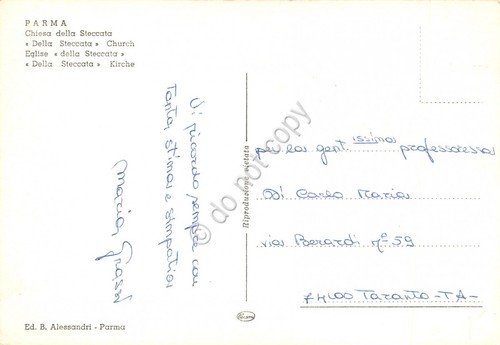 PARMA
Chiesa della Steccata
« Della Steccata » Church
Eglise « della Steccata »
« Della Steccata » Kirche
Vi ricordo sempre con
tanta stima e simpatia
Maria Grassi
Riproduzione vietata
per la gent.issima professoressa
Di Carlo Maria
via Berardi n° 59
74100 Taranto -TA-
Ed. B. Alessandri - Parma
© do not copy